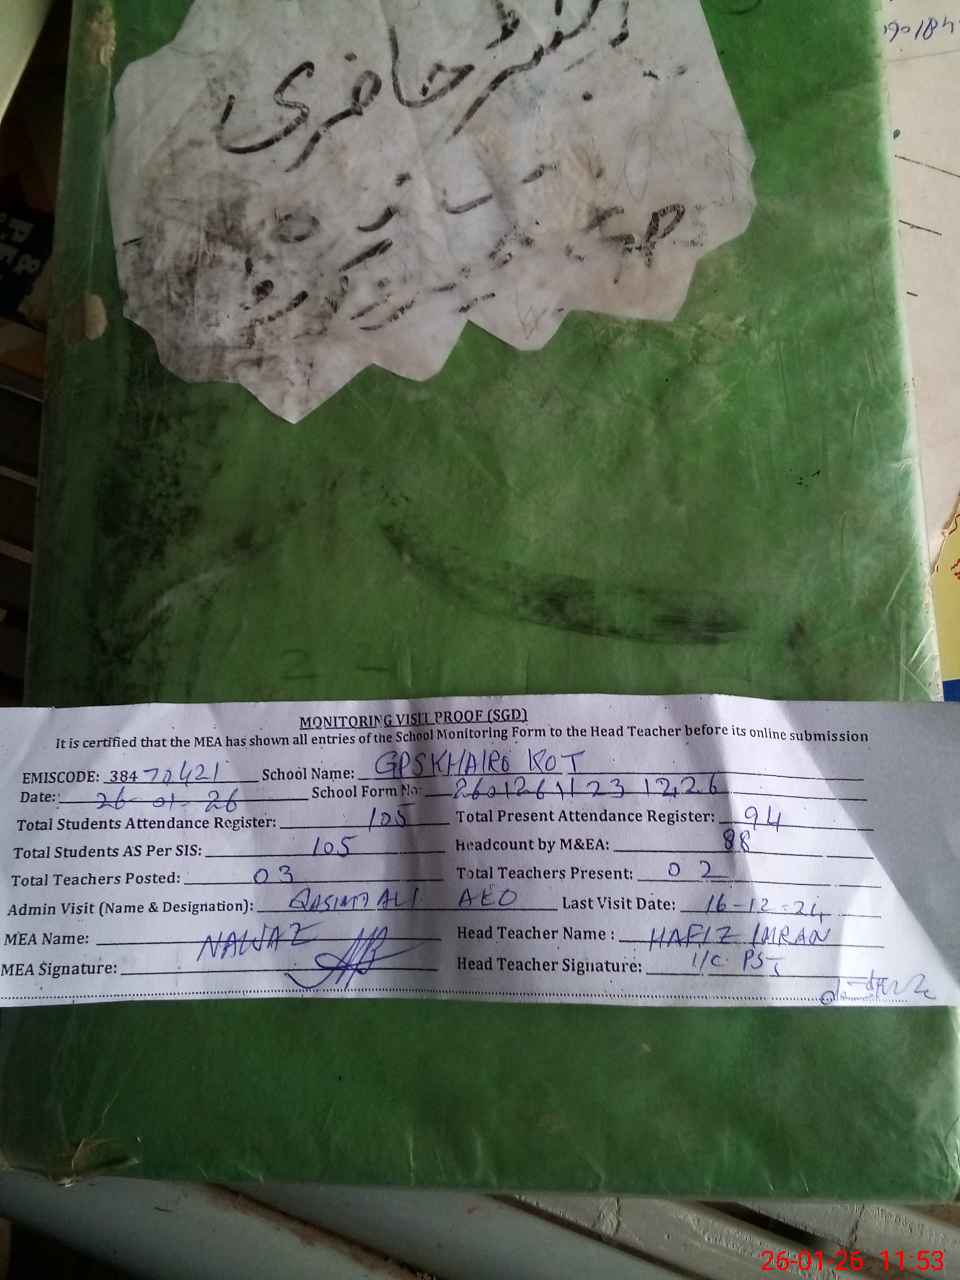 حاضری
MONITORING VISIT PROOF (SGD)
It is certified that the MEA has shown all entries of the School Monitoring Form to the Head Teacher before its online submission
EMISCODE: 38470421 School Name: GPSKHAIRO KOT
Date: 26-01-26 School Form No:
Total Students Attendance Register: 105 Total Present Attendance Register: 94
Total Students AS Per SIS: 105 Headcount by M&EA: 88
Total Teachers Posted: 03 Total Teachers Present: 02
Admin Visit (Name & Designation): QASIM ALI AEO Last Visit Date: 16-12-24
MEA Name: NAWAZ Head Teacher Name : HAFIZ IMRAN
MEA Signature: Head Teacher Signature: I/C PST
26-01-26 11:53